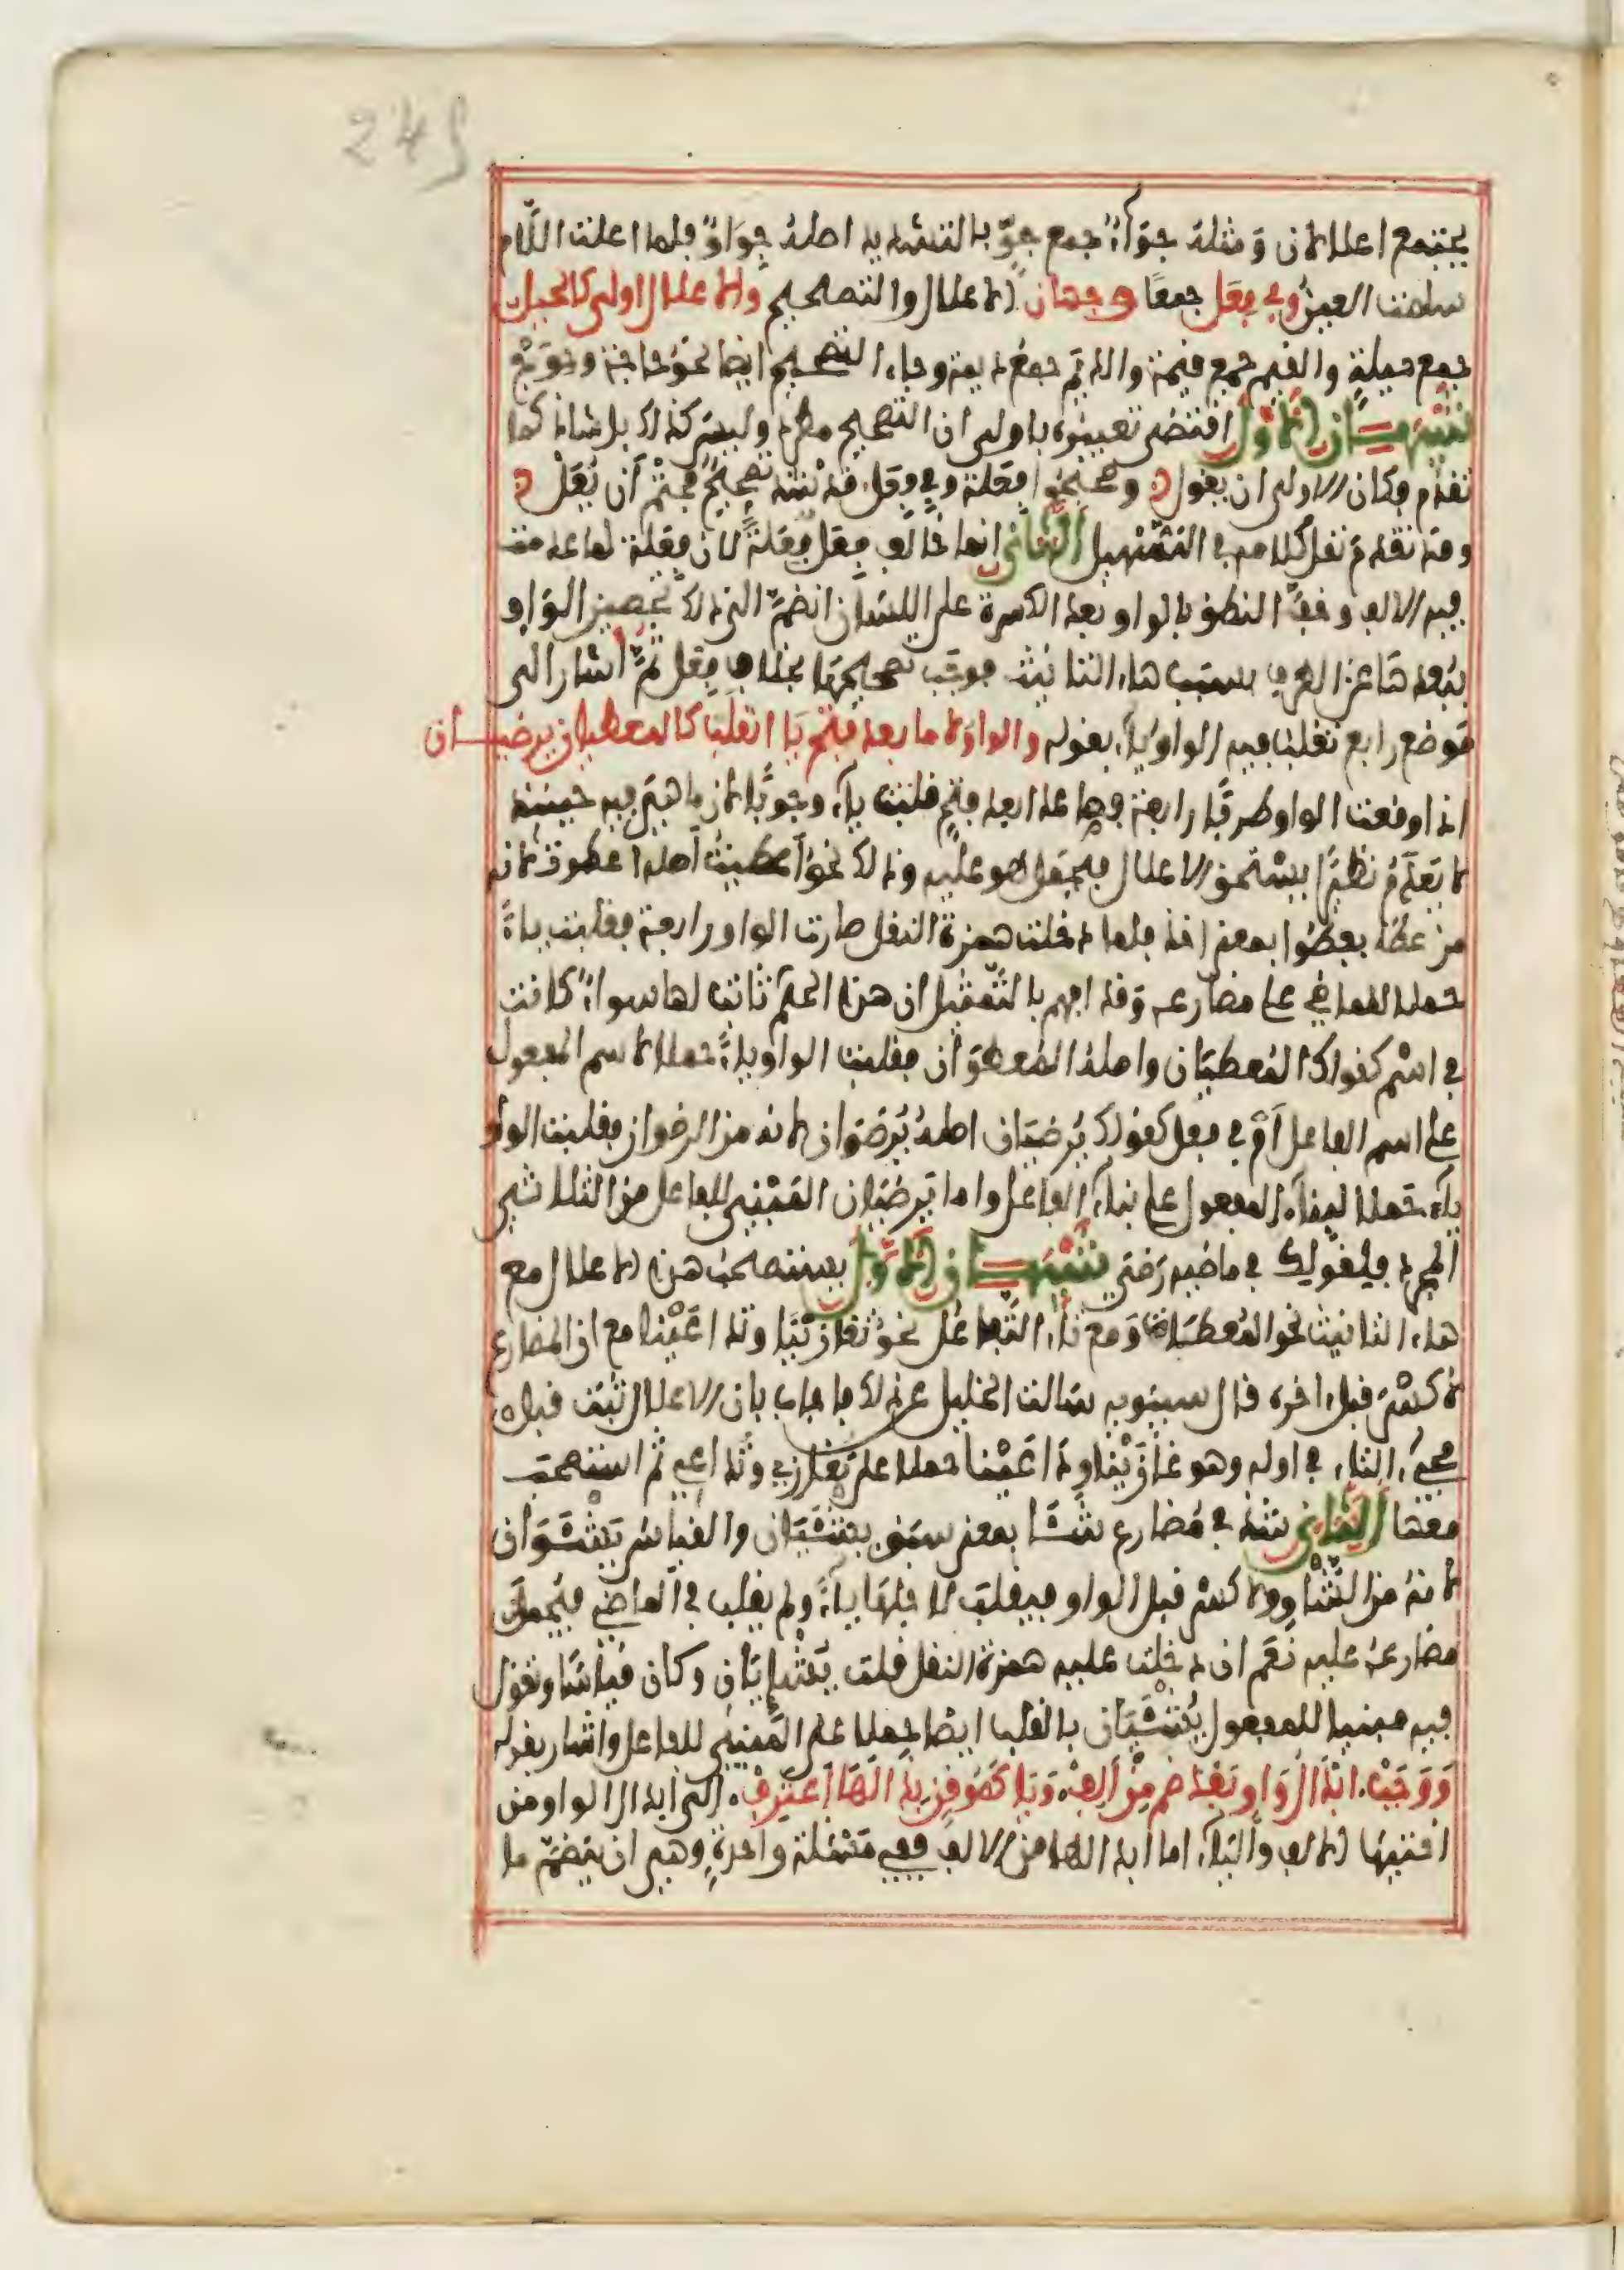 245
يجتمع اعلالان ومثله جوّاء جمع جوّ بالتشديد اصله جواوٌ فلما اعلت اللّام
سلمت العين وفي فِعَل جمعًا وجهان الاعلال والتصحيح والاعلال اولى كالحيل
جمع حيلةٍ والقيم جمع قيمة والديم جمع ديمة وجاء التصحيح ايضا نحو حاجة وحوَجٌ
تنبيهـــان الاول اقتضى تعبيره باولى ان التصحيح مطرد وليس كذلك بل شاذ كما
تقدم وكان الاولى ان يقول وصححوا فِعَلة وفي فِعَل قد شذ تصحيحٌ فحتمٌ أن يُعَل
وقد تقدم نقل كلامه في التسهيل الثاني انما خالف فِعَل فِعَلةً لان فِعَلة لما عدمت
فيه الالف وخفّ النطق بالواو بعد الكسرة على اللسان انضمّ الى ذلك تحصين الواو
ببُعدها عن الطرف بسبب هاء التانيث فوجب تصحيحها بخلاف فِعَل ثمّ اشار الى
موضع رابع تقلب فيه الواو ياء بقوله والواو لاما بعد فتح يا انقلب كالمعطيان يرضيـــان
اذا وقعت الواو طرفًا رابعة فصاعدا بعد فتح قلبت ياء وجوبًا لان ما هي فيه حينئذ
لا يعدم نظيرًا يستحق الاعلال فيحمل هو عليه وذلك نحو أعطيتُ أصله اعطوت لانه
من عطا يعطوا بمعنى اخذ فلما دخلت همزة النقل صارت الواو رابعة فقلبت ياءً
حملا للماضي على مضارعه وقد افهم بالتمثيل ان هذا الحكم ثابت لها سواءٌ كانت
في اسْم كقولك المُعطيَان واصله المُعطَوَان فقلبت الواو ياءً حملا لاسم المفعول
على اسم الفاعل أوْ في فعل كقولك يُرضيَان اصله يُرضَوَان لانه من الرضوان فقلبت الواو
ياء حملا لبناء المفعول على بناء الفاعل واما يَرضيَان المَبْنِي للفاعل من الثلاثي
المجرد فلقولك في ماضيه رَضي تنبيهـــان الاول يستصحب هذا الاعلال مع
هاء التانيث نحو المُعطَاة وَمع تاء التَّفاعُل نحو تغازَيْنَا وتداعَيْنا مع ان المضارع
لا كسْرَ قبل اخره قال سيبويه سالت الخليل عن ذلك فاجاب بان الاعلال ثبت قبل
مجيء التاء في اوله وهو غازَيْنا وداعَيْنا حملا على نُغازي ونُداعي ثم استصحب
معها الثاني شذ في مضارع شَـا بمعنى سبق يَشْيَان والقياس يَشْوَان
لانه من الشَّأو ولا كسر قبل الواو فيقلب لاجلها ياءً ولم يقلب في الماضي فيُحمل
مضارعه عليه نَعَم ان دخلت عليه همزة النقل قلت يُشْئِيَان وكان قياسًا وتقول
فيه مبنيا للمفعول يُشْيَان بالقلب ايضا حملا على المَبْني للفاعل واشار بقوله
وَوَجَبْ ابْدالُ وَاوٍ بَعْدَ ضم مِنْ ألِفْ وَيَا كَمُوقِنٍ بِذَا لَهَا اعْتَرِفْ الى ابدال الواو من
اختيها الالف والياء اما ابدالها من الالف ففي مَسْئلة واحدةٍ وهي ان يَنضمّ ما